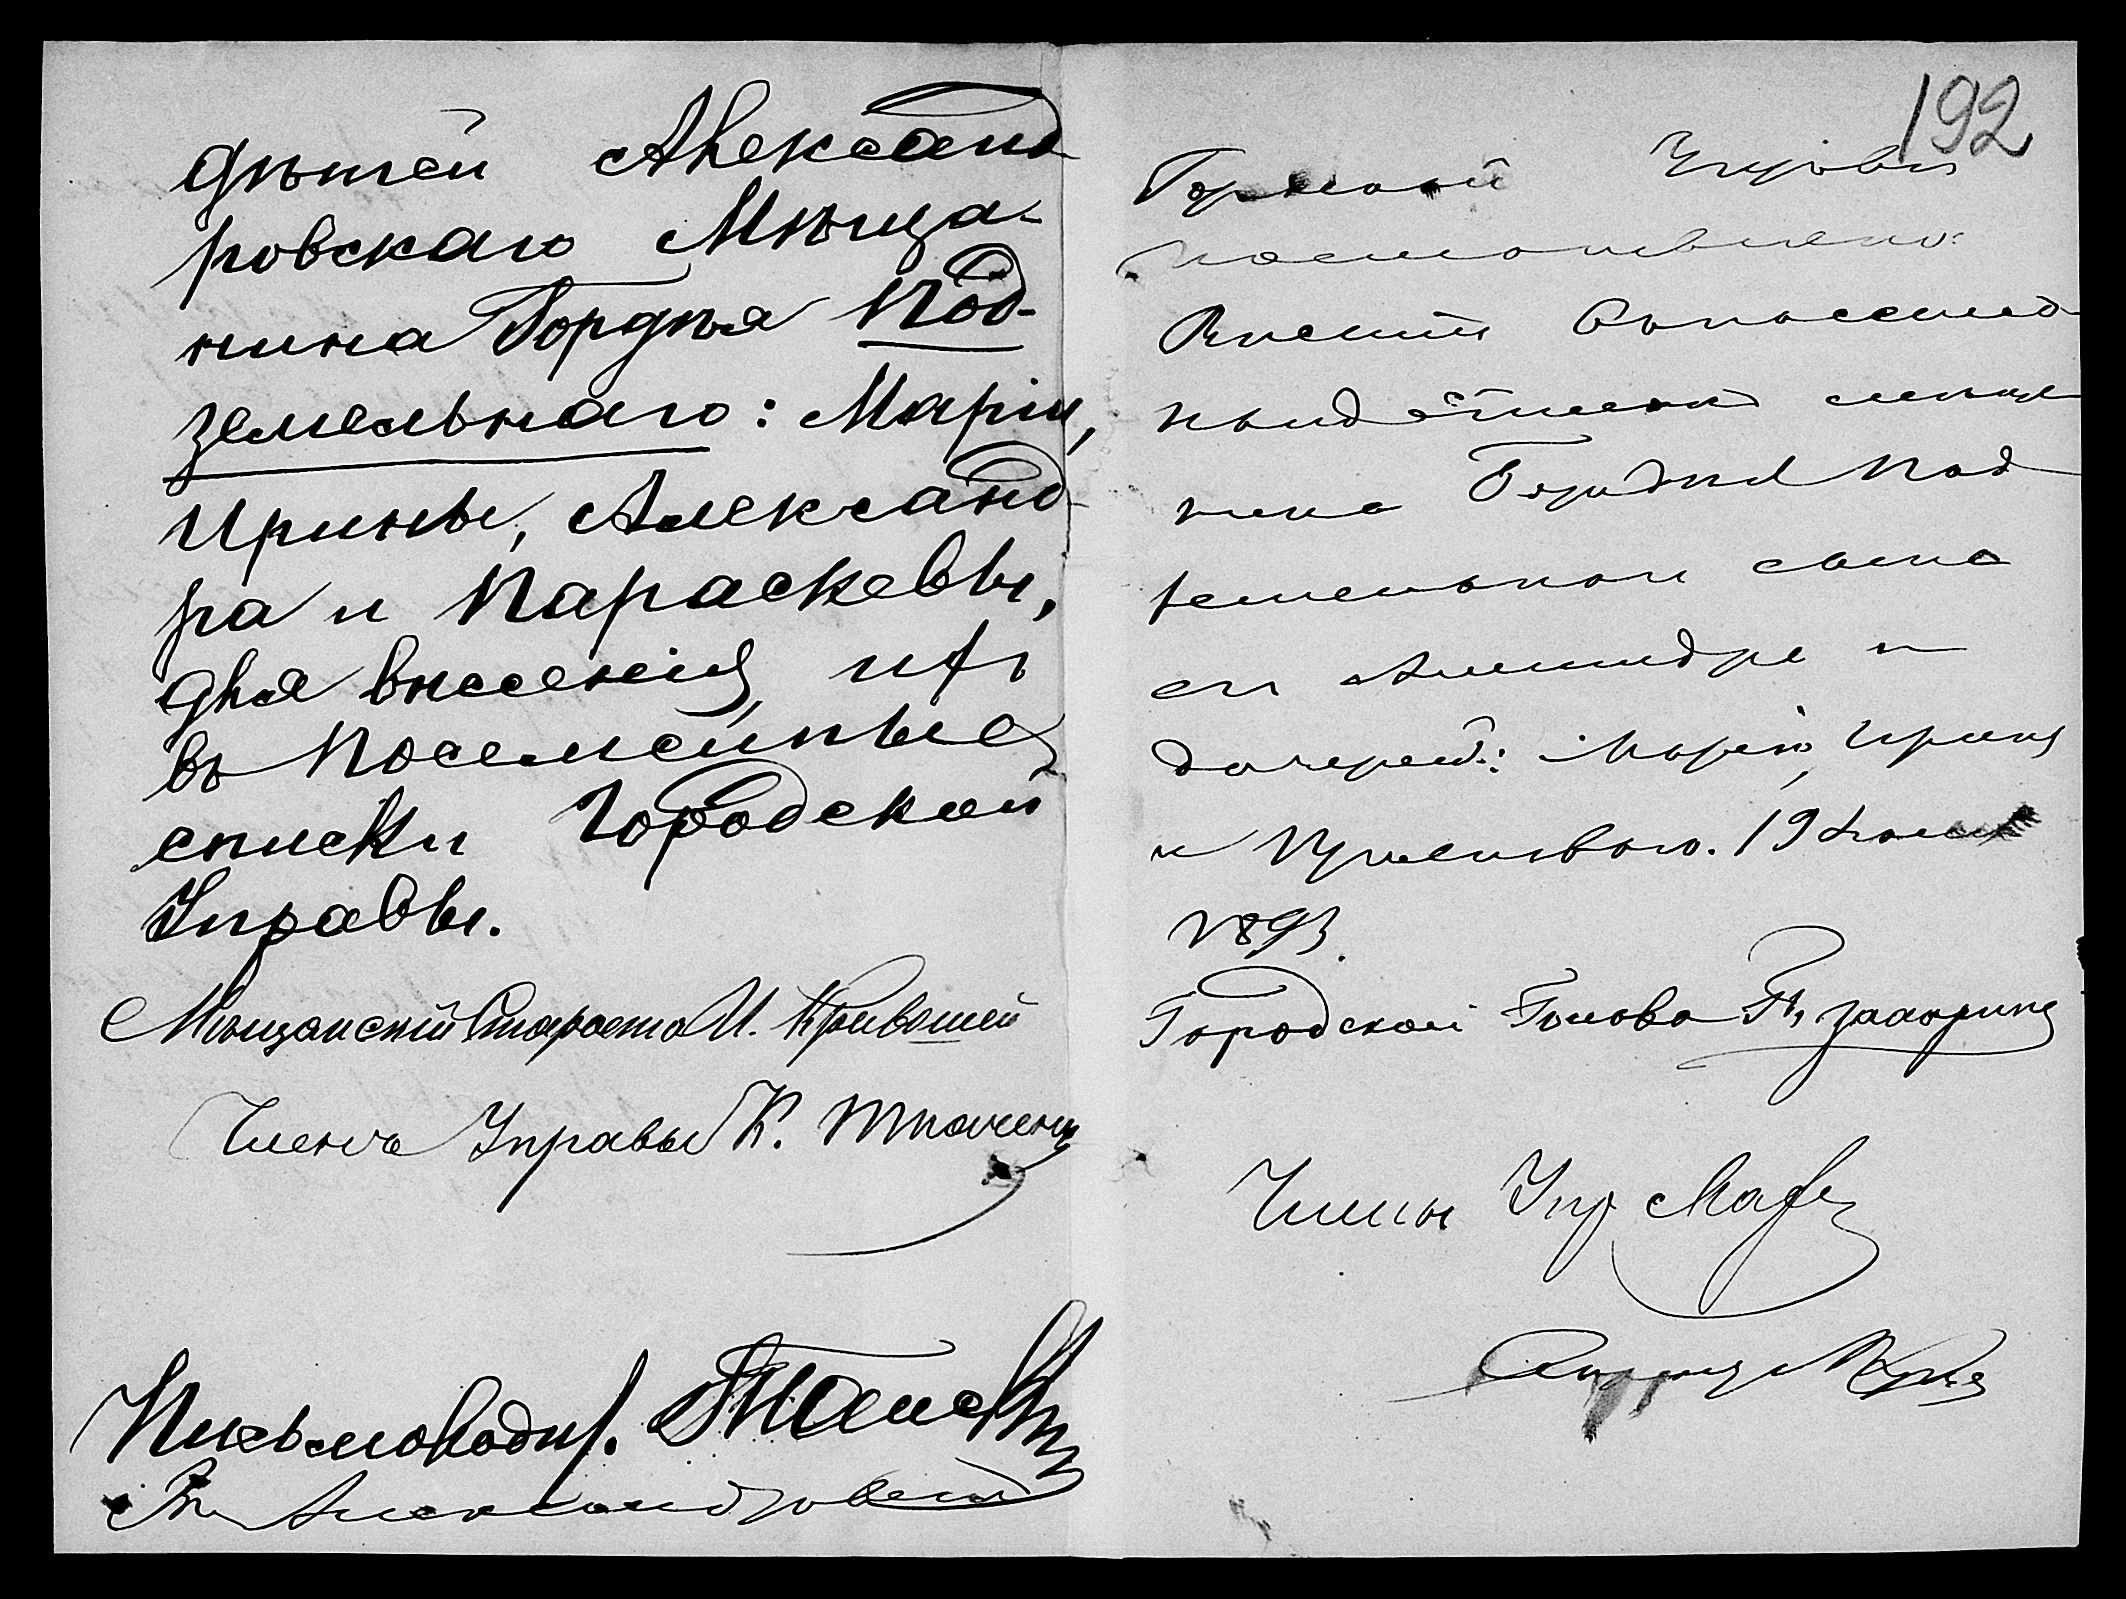 дѣтей Александ
ровскаго Мѣща-
нина Гордѣя Под-
земельнаго: Маріи,
Ирины, Александ-
ра и Параскевы,
для внесенія, ихъ
въ посемейные
списки Городской
Управы.
Мѣщанскій Староста И. Кривошей
Членъ Управы К. Ткаченко
Письмоводит.
Александровскъ
192
Городской Управы
постановлено:
Внести
мѣща-
нина Гордѣя Под
земельнаго сына
его Александра и
дочерей: Марію, Ирину
и Прасковью. 19
1893.
Городской Голова
Члены Упр